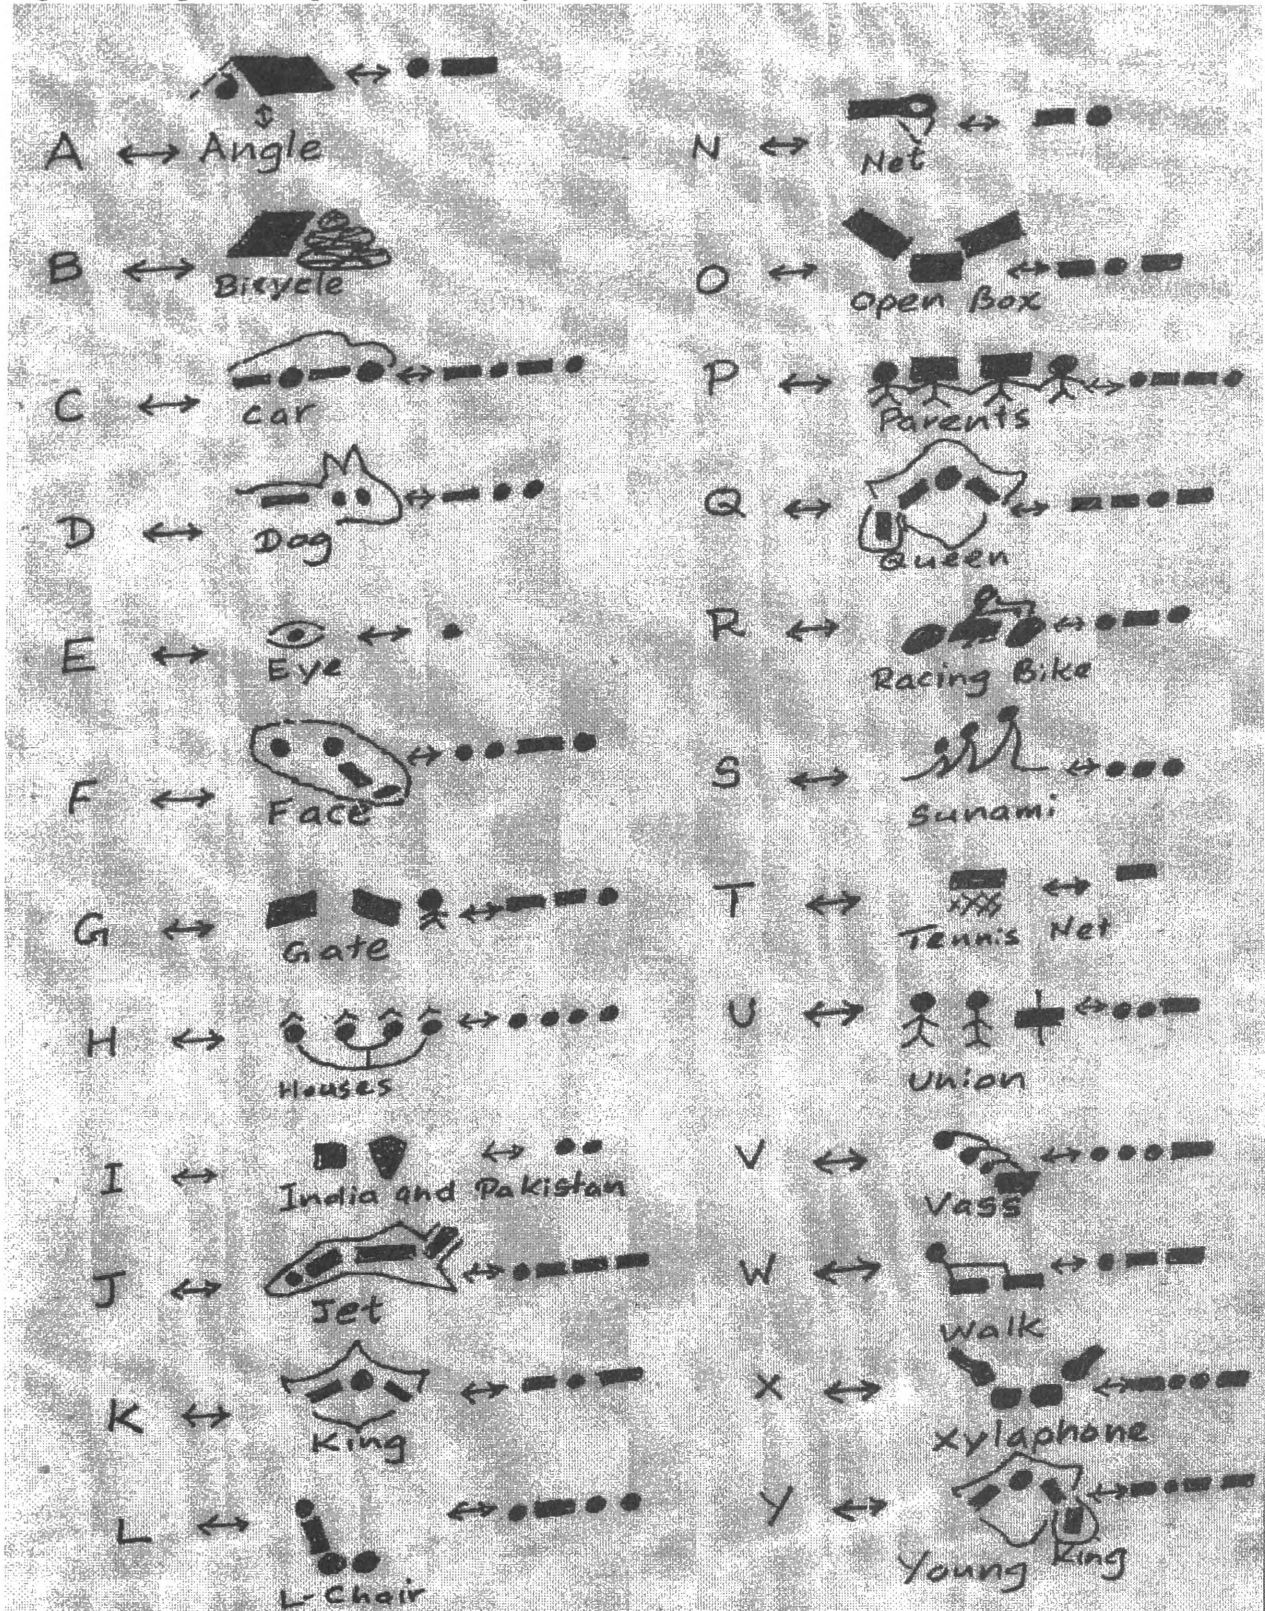 A ↔ Angle ↔ • −
B ↔ Bicycle
C ↔ car ↔ − • − •
D ↔ Dog ↔ − • •
E ↔ Eye ↔ •
F ↔ Face ↔ • • − •
G ↔ Gate ↔ − − •
H ↔ Houses ↔ • • • •
I ↔ India and Pakistan ↔ • •
J ↔ Jet ↔ • − − −
K ↔ King ↔ − • −
L ↔ L-Chair ↔ • − • •
N ↔ Net ↔ − •
O ↔ Open Box ↔ − • −
P ↔ Parents ↔ • − − •
Q ↔ Queen ↔ − − • −
R ↔ Racing Bike ↔ • − •
S ↔ Sunami ↔ • • •
T ↔ Tennis Net ↔ −
U ↔ Union ↔ • • −
V ↔ Vass ↔ • • • −
W ↔ Walk ↔ • − −
X ↔ Xylaphone ↔ − • • −
Y ↔ Young King ↔ − • − −